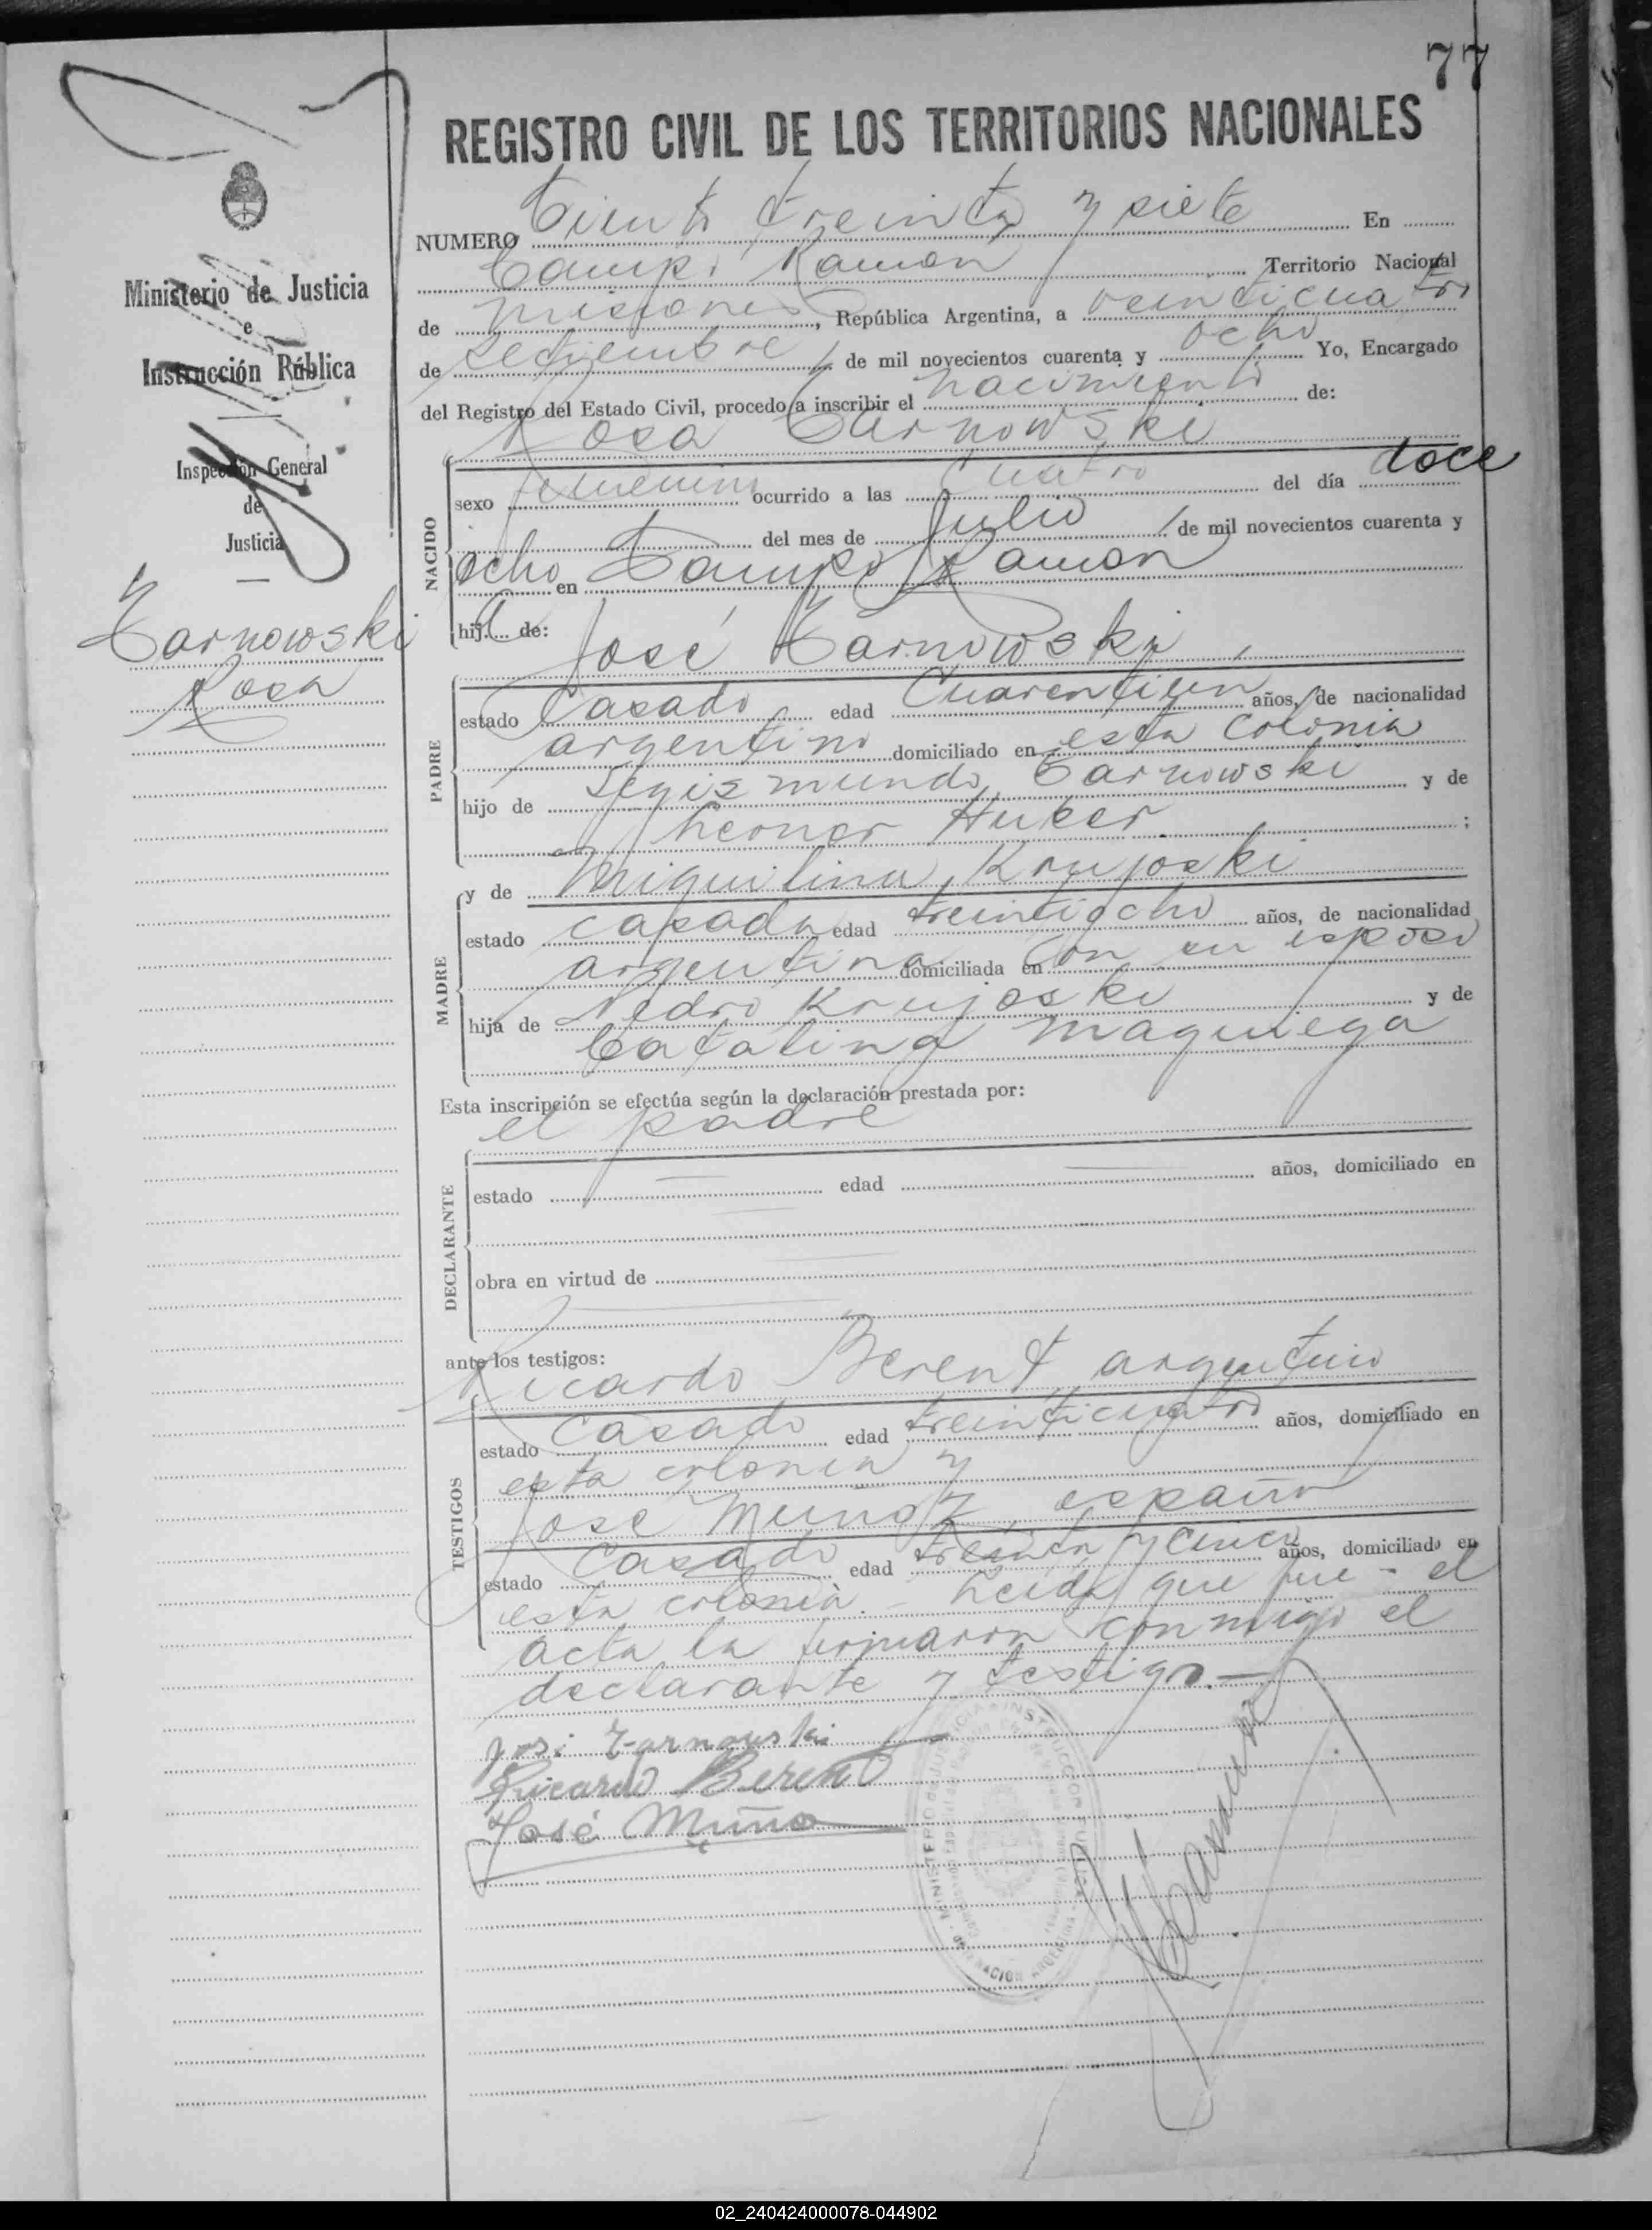 77
REGISTRO CIVIL DE LOS TERRITORIOS NACIONALES
Ministerio de Justicia
e
Instrucción Pública
Inspección General
de
Justicia
Tarnowski
Rosa
NUMERO Ciento treinta y siete En
Campo Ramon Territorio Nacional
de Misiones, República Argentina, a veinticuatro
de setiembre de mil novecientos cuarenta y ocho Yo, Encargado
del Registro del Estado Civil, procedo a inscribir el nacimiento de:
Rosa Tarnowski
NACIDO
sexo femenino ocurrido a las cuatro del día doce
del mes de Julio de mil novecientos cuarenta y
ocho en Campo Ramon
hija de:
José Tarnowski,
PADRE
estado Casado edad Cuarentiun años, de nacionalidad
argentino domiciliado en esta colonia
hijo de Segismundo Tarnowski y de
Huber ;
y de Miguilina Krujoski
MADRE
estado casada edad treintiocho años, de nacionalidad
argentina domiciliada en con su esposo
hija de Pedro Krujoski y de
Catalina Maquiega
Esta inscripción se efectúa según la declaración prestada por:
el padre
DECLARANTE
estado edad años, domiciliado en
obra en virtud de
ante los testigos:
Ricardo Berent argentino
TESTIGOS
estado Casado edad treinticuatro años, domiciliado en
esta colonia y
José Muñoz, español
estado Casado edad treinta y cinco años, domiciliado en
esta colonia. - Leida que fue - el
acta la firmaron conmigo el
declarante y testigo. —
José Tarnouski
Ricardo Berent
José Muño
MINISTERIO DE JUSTICIA E INSTRUCCION PUBLICA
02_240424000078-044902